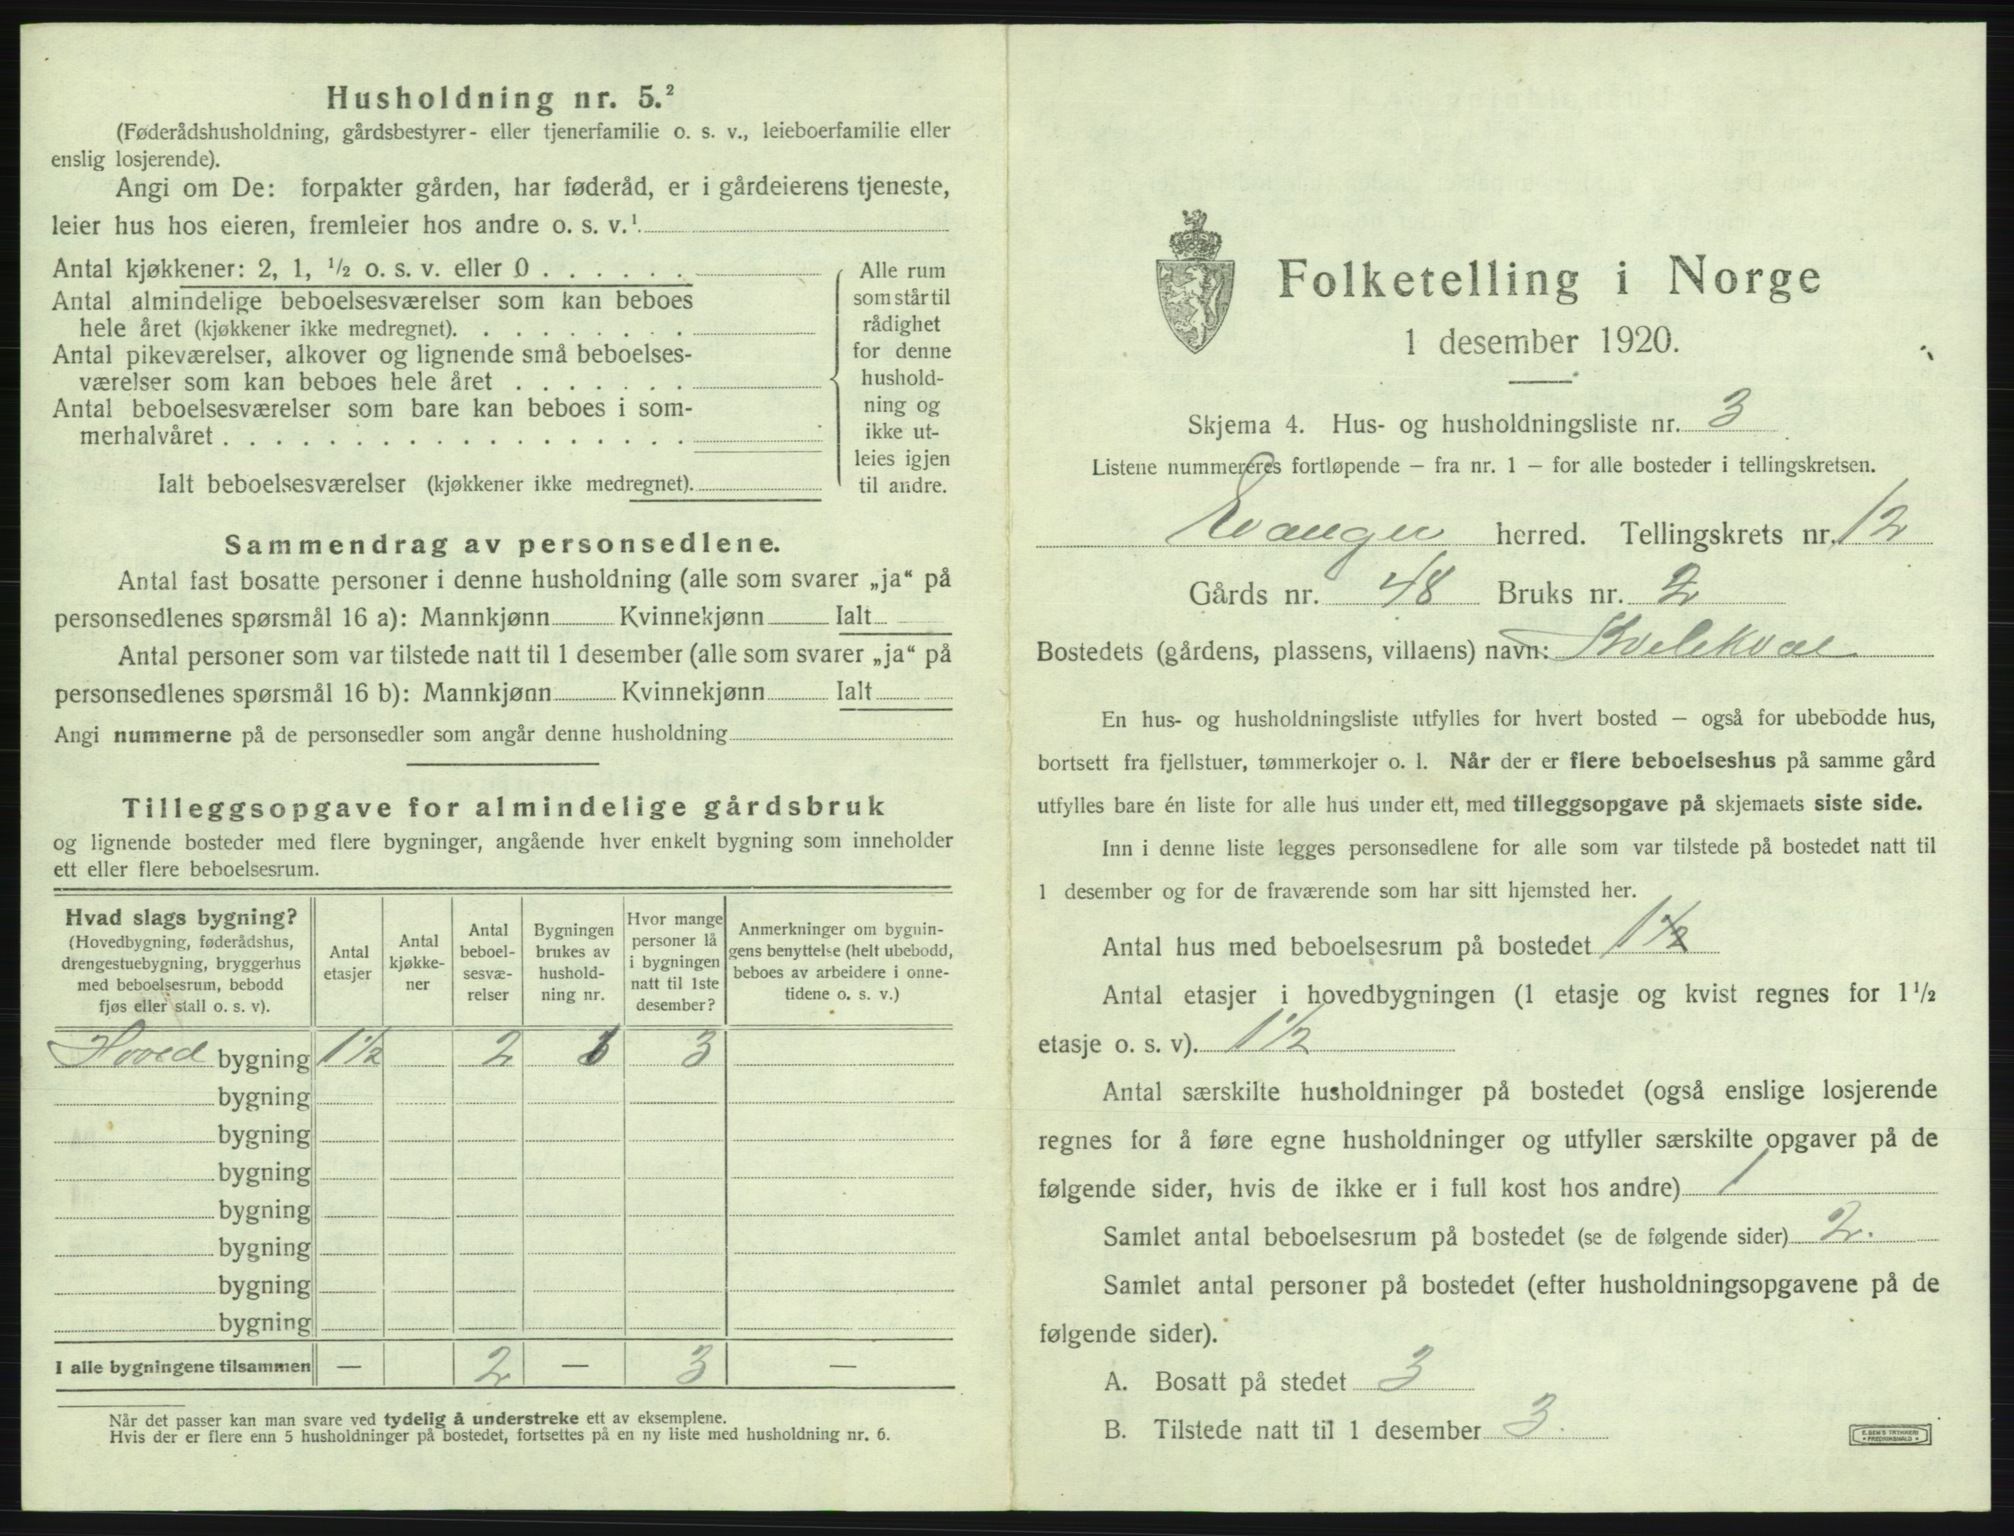 Husholdning nr. 5.²
(Føderådshusholdning, gårdsbestyrer- eller tjenerfamilie o. s. v., leieboerfamilie eller
enslig losjerende).
Angi om De: forpakter gården, har føderåd, er i gårdeierens tjeneste,
leier hus hos eieren, fremleier hos andre o. s. v.¹
Antal kjøkkener: 2, 1, ½ o. s. v. eller 0 . . . . . .
Antal almindelige beboelsesværelser som kan beboes
hele året (kjøkkener ikke medregnet). . . . . . . . .
Antal pikeværelser, alkover og lignende små beboelses-
værelser som kan beboes hele året . . . . . . .
Antal beboelsesværelser som bare kan beboes i som-
merhalvåret . . . . . . . . . . . . . . . . . .
Ialt beboelsesværelser (kjøkkener ikke medregnet).
Alle rum
som står til
rådighet
for denne
hushold-
ning og
ikke ut-
leies igjen
til andre.
Sammendrag av personsedlene.
Antal fast bosatte personer i denne husholdning (alle som svarer „ja“ på
personsedlenes spørsmål 16 a): Mannkjønn Kvinnekjønn Ialt
Antal personer som var tilstede natt til 1 desember (alle som svarer „ja“ på
personsedlenes spørsmål 16 b): Mannkjønn Kvinnekjønn Ialt
Angi nummerne på de personsedler som angår denne husholdning
Tilleggsopgave for almindelige gårdsbruk
og lignende bosteder med flere bygninger, angående hver enkelt bygning som inneholder
ett eller flere beboelsesrum.
Hvad slags bygning?
(Hovedbygning, føderådshus,
drengestuebygning, bryggerhus
med beboelsesrum, bebodd
fjøs eller stall o. s. v).
Antal
etasjer
Antal
kjøkke-
ner
Antal
beboel-
sesvæ-
relser
Bygningen
brukes av
hushold-
ning nr.
Hvor mange
personer lå
i bygningen
natt til 1ste
desember?
Anmerkninger om bygnin-
gens benyttelse (helt ubebodd,
beboes av arbeidere i onne-
tidene o. s. v.)
Hoved bygning 1½ 2 1 3
bygning
bygning
bygning
bygning
bygning
bygning
bygning
I alle bygningene tilsammen — 2 — 3 —
Når det passer kan man svare ved tydelig å understreke ett av eksemplene.
Hvis der er flere enn 5 husholdninger på bostedet, fortsettes på en ny liste med husholdning nr. 6.
Folketelling i Norge
1 desember 1920.
Skjema 4. Hus- og husholdningsliste nr. 3
Listene nummereres fortløpende – fra nr. 1 – for alle bosteder i tellingskretsen.
Evanger herred. Tellingskrets nr. 12
Gårds nr. 48 Bruks nr. 2
Bostedets (gårdens, plassens, villaens) navn:
En hus- og husholdningsliste utfylles for hvert bosted – også for ubebodde hus,
bortsett fra fjellstuer, tømmerkojer o. l. Når der er flere beboelseshus på samme gård
utfylles bare én liste for alle hus under ett, med tilleggsopgave på skjemaets siste side.
Inn i denne liste legges personsedlene for alle som var tilstede på bostedet natt til
1 desember og for de fraværende som har sitt hjemsted her.
Antal hus med beboelsesrum på bostedet 1½
Antal etasjer i hovedbygningen (1 etasje og kvist regnes for 1½
etasje o. s. v). 1½
Antal særskilte husholdninger på bostedet (også enslige losjerende
regnes for å føre egne husholdninger og utfyller særskilte opgaver på de
følgende sider, hvis de ikke er i full kost hos andre) 1
Samlet antal beboelsesrum på bostedet (se de følgende sider) 2.
Samlet antal personer på bostedet (efter husholdningsopgavene på de
følgende sider).
A. Bosatt på stedet 3
B. Tilstede natt til 1 desember 3.
E. SEM'S TRYKKERI
FREDRIKSHALD